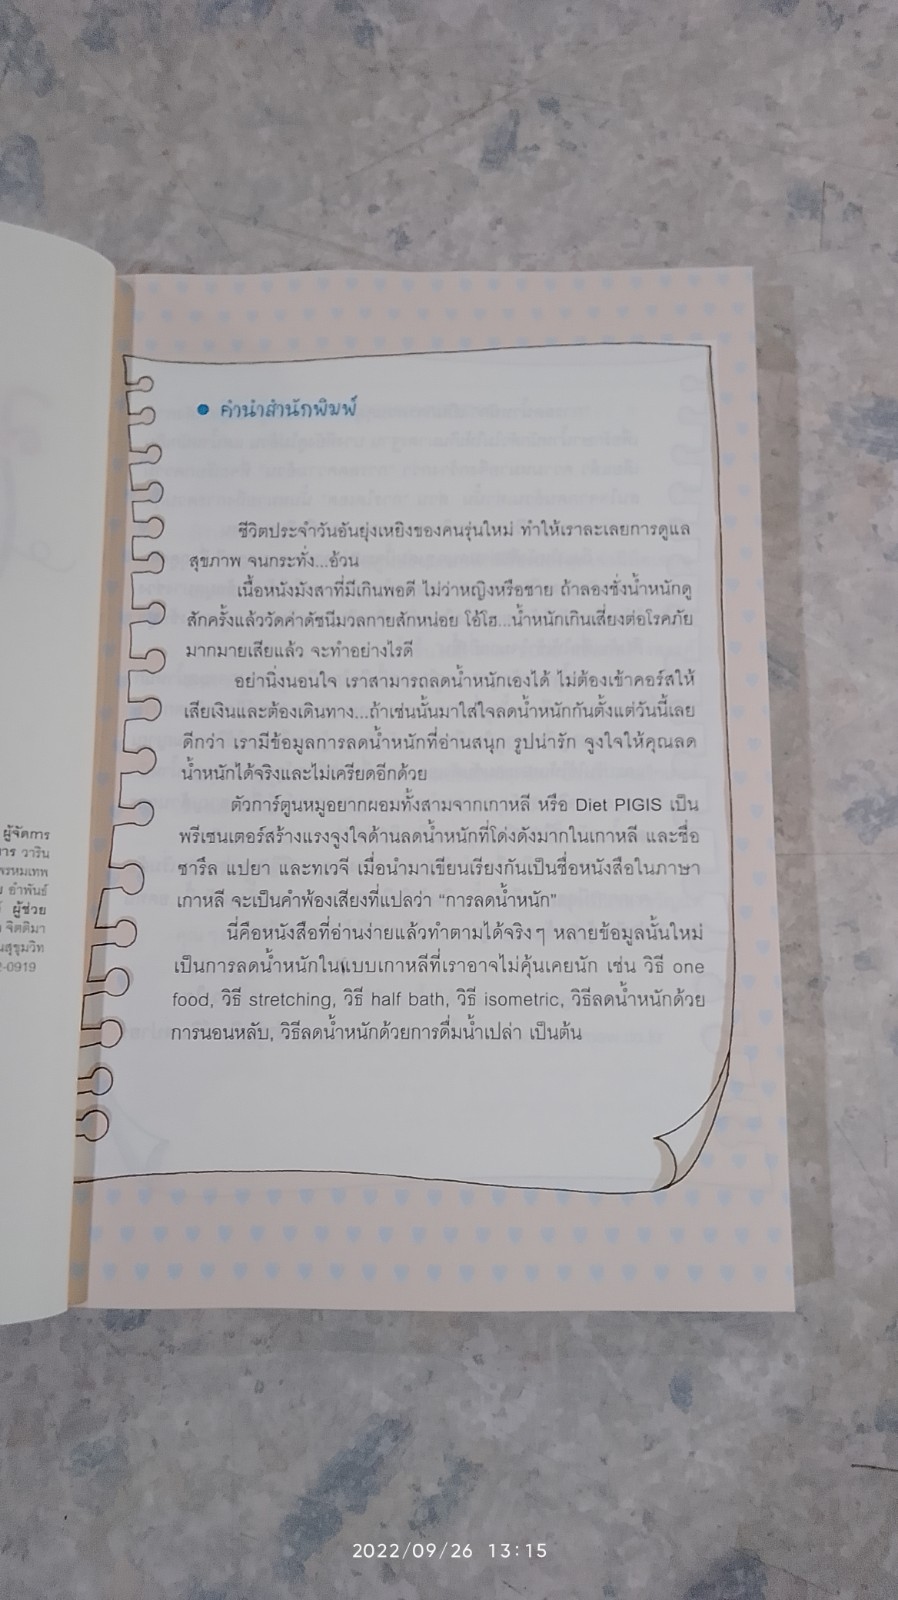 คำนำสำนักพิมพ์
ชีวิตประจำวันอันยุ่งเหยิงของคนรุ่นใหม่ ทำให้เราละเลยการดูแล
สุขภาพ จนกระทั่ง...อ้วน
เนื้อหนังมังสาที่มีเกินพอดี ไม่ว่าหญิงหรือชาย ถ้าลองชั่งน้ำหนักดู
สักครั้งแล้ววัดค่าดัชนีมวลกายสักหน่อย โอ้โฮ...น้ำหนักเกินเสี่ยงต่อโรคภัย
มากมายเสียแล้ว จะทำอย่างไรดี
อย่านิ่งนอนใจ เราสามารถลดน้ำหนักเองได้ ไม่ต้องเข้าคอร์สให้
เสียเงินและต้องเดินทาง...ถ้าเช่นนั้นมาใส่ใจลดน้ำหนักกันตั้งแต่วันนี้เลย
ดีกว่า เรามีข้อมูลการลดน้ำหนักที่อ่านสนุก รูปน่ารัก จูงใจให้คุณลด
น้ำหนักได้จริงและไม่เครียดอีกด้วย
ตัวการ์ตูนหมูอยากผอมทั้งสามจากเกาหลี หรือ Diet PIGIS เป็น
พรีเซนเตอร์สร้างแรงจูงใจด้านลดน้ำหนักที่โด่งดังมากในเกาหลี และชื่อ
ซารึล แปยา และทเวจี เมื่อนำมาเขียนเรียงกันเป็นชื่อหนังสือในภาษา
เกาหลี จะเป็นคำพ้องเสียงที่แปลว่า “การลดน้ำหนัก”
นี่คือหนังสือที่อ่านง่ายแล้วทำตามได้จริงๆ หลายข้อมูลนั้นใหม่
เป็นการลดน้ำหนักในแบบเกาหลีที่เราอาจไม่คุ้นเคยนัก เช่น วิธี one
food, วิธี stretching, วิธี half bath, วิธี isometric, วิธีลดน้ำหนักด้วย
การนอนหลับ, วิธีลดน้ำหนักด้วยการดื่มน้ำเปล่า เป็นต้น
ผู้จัดการ
วาริน
พรหมเทพ
อำพันธ์
ผู้ช่วย
จิตติมา
สุขุมวิท
2-0919
2022/09/26 13:15